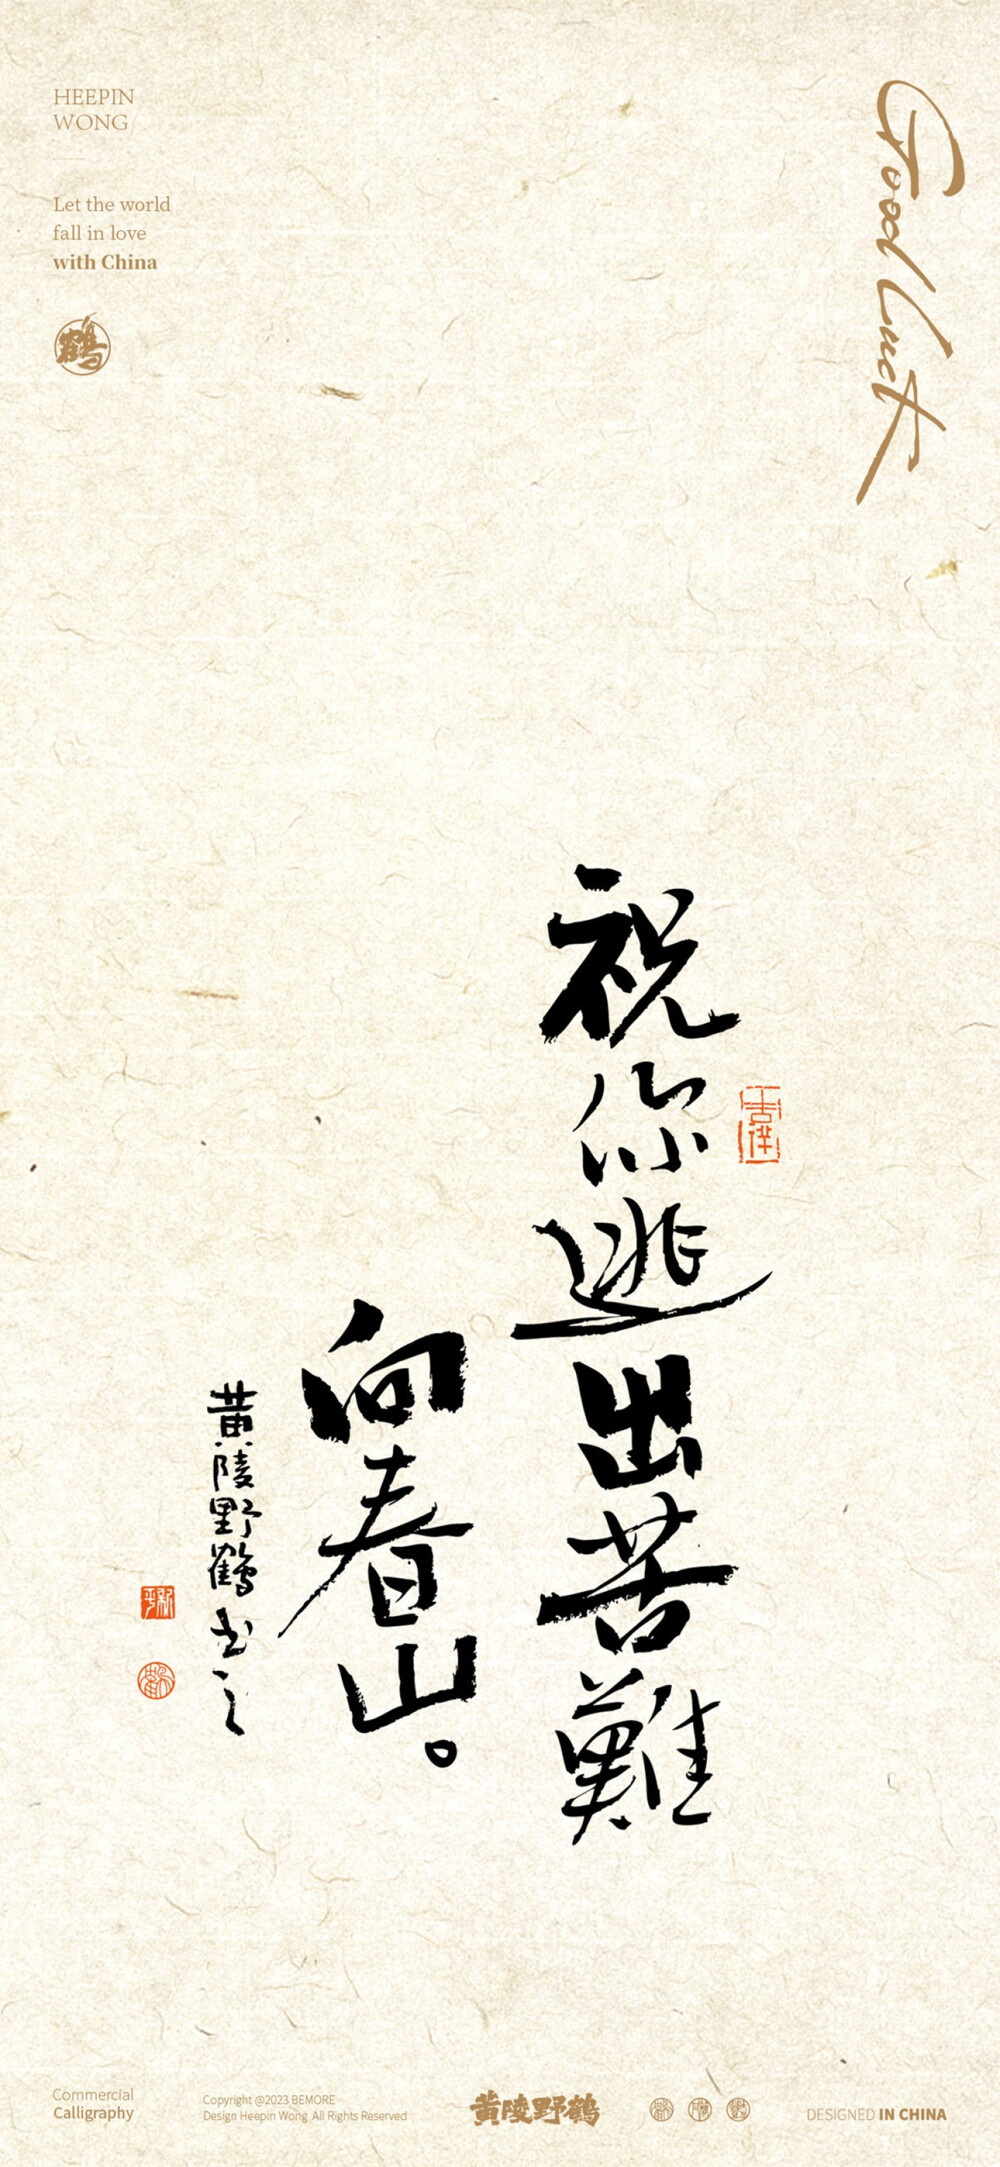 HEEPIN
WONG
Let the world
fall in love
with China
鹤
Good luck
祝你逃出苦難
向春山。
黄陵野鶴书之
Commercial
Calligraphy
Copyright @2023 BEMORE
Design Heepin Wong All Rights Reserved
黄陵野鹤
DESIGNED IN CHINA